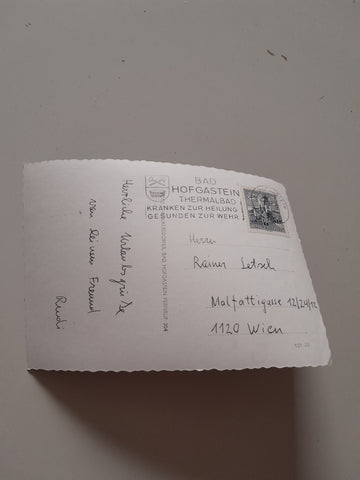 Herzliche Urlaubsgrüße
von deinem Freund
Rudi
BAD
HOFGASTEIN
THERMALBAD
KRANKEN ZUR HEILUNG
GESUNDEN ZUR WEHR
Herrn
Rainer Letsch
Malfattigasse 12/24/12
1120 Wien